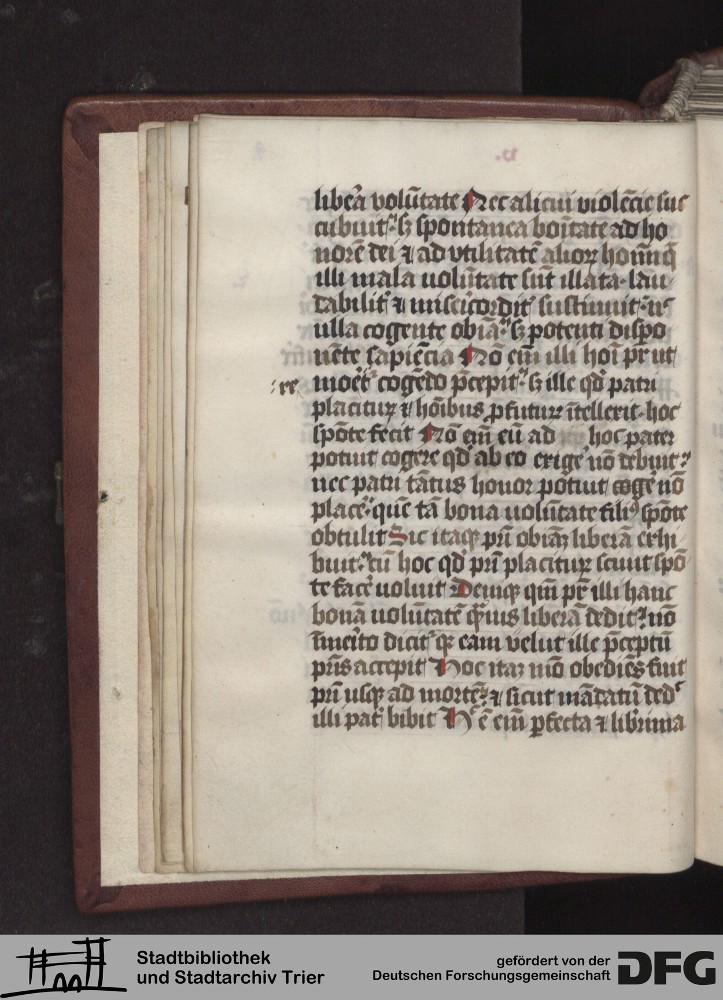 v.
liberā volūtate Nec alicui violēcie suc
cubuit. sꝫ spontanea bonitate ad ho
norē dei ⁊ ad vtilitatē alioꝝ hominū
illi mala uolūtate sūt illata. lau
dabilit ⁊ misericordit sustinuit. n
ulla cogente obiā. sꝫ potenti dispo
nēte sapiēcia Nō eīn illi hoī pr ut
re moret cogēdo p̄cepit. sꝫ ille qd patri
placituꝝ ⁊ hōibus ꝓfutuꝝ ītellexit. hoc
spōte fecit Nō eīn eū ad hoc pater
potuit cogere qd ab eo exige nō debuit.
nec patri tātus honor potuit cogē nō
placē. quē tā bona uolūtate filiꝰ spōte
obtulit Sic itaqꝫ pr̄i obiāꝫ liberā exhi
buit. cū hoc qd pr̄i placituꝝ sciuit spō
te facē uoluit Deniqꝫ qm̄ pr̄ illi hanc
bonā uolūtatē q̄uis liberā dedit. nō
īmerito dicit qꝫ eam velut ille p̄ceptū
pr̄is accepit Hoc itaꝫ mō obediēs fuit
pr̄i usqꝫ ad mortē. ⁊ sicut mādatū ded
illi pat bibit H ē eīn ꝑfecta ⁊ librima
Stadtbibliothek
und Stadtarchiv Trier
gefördert von der
Deutschen Forschungsgemeinschaft
DFG